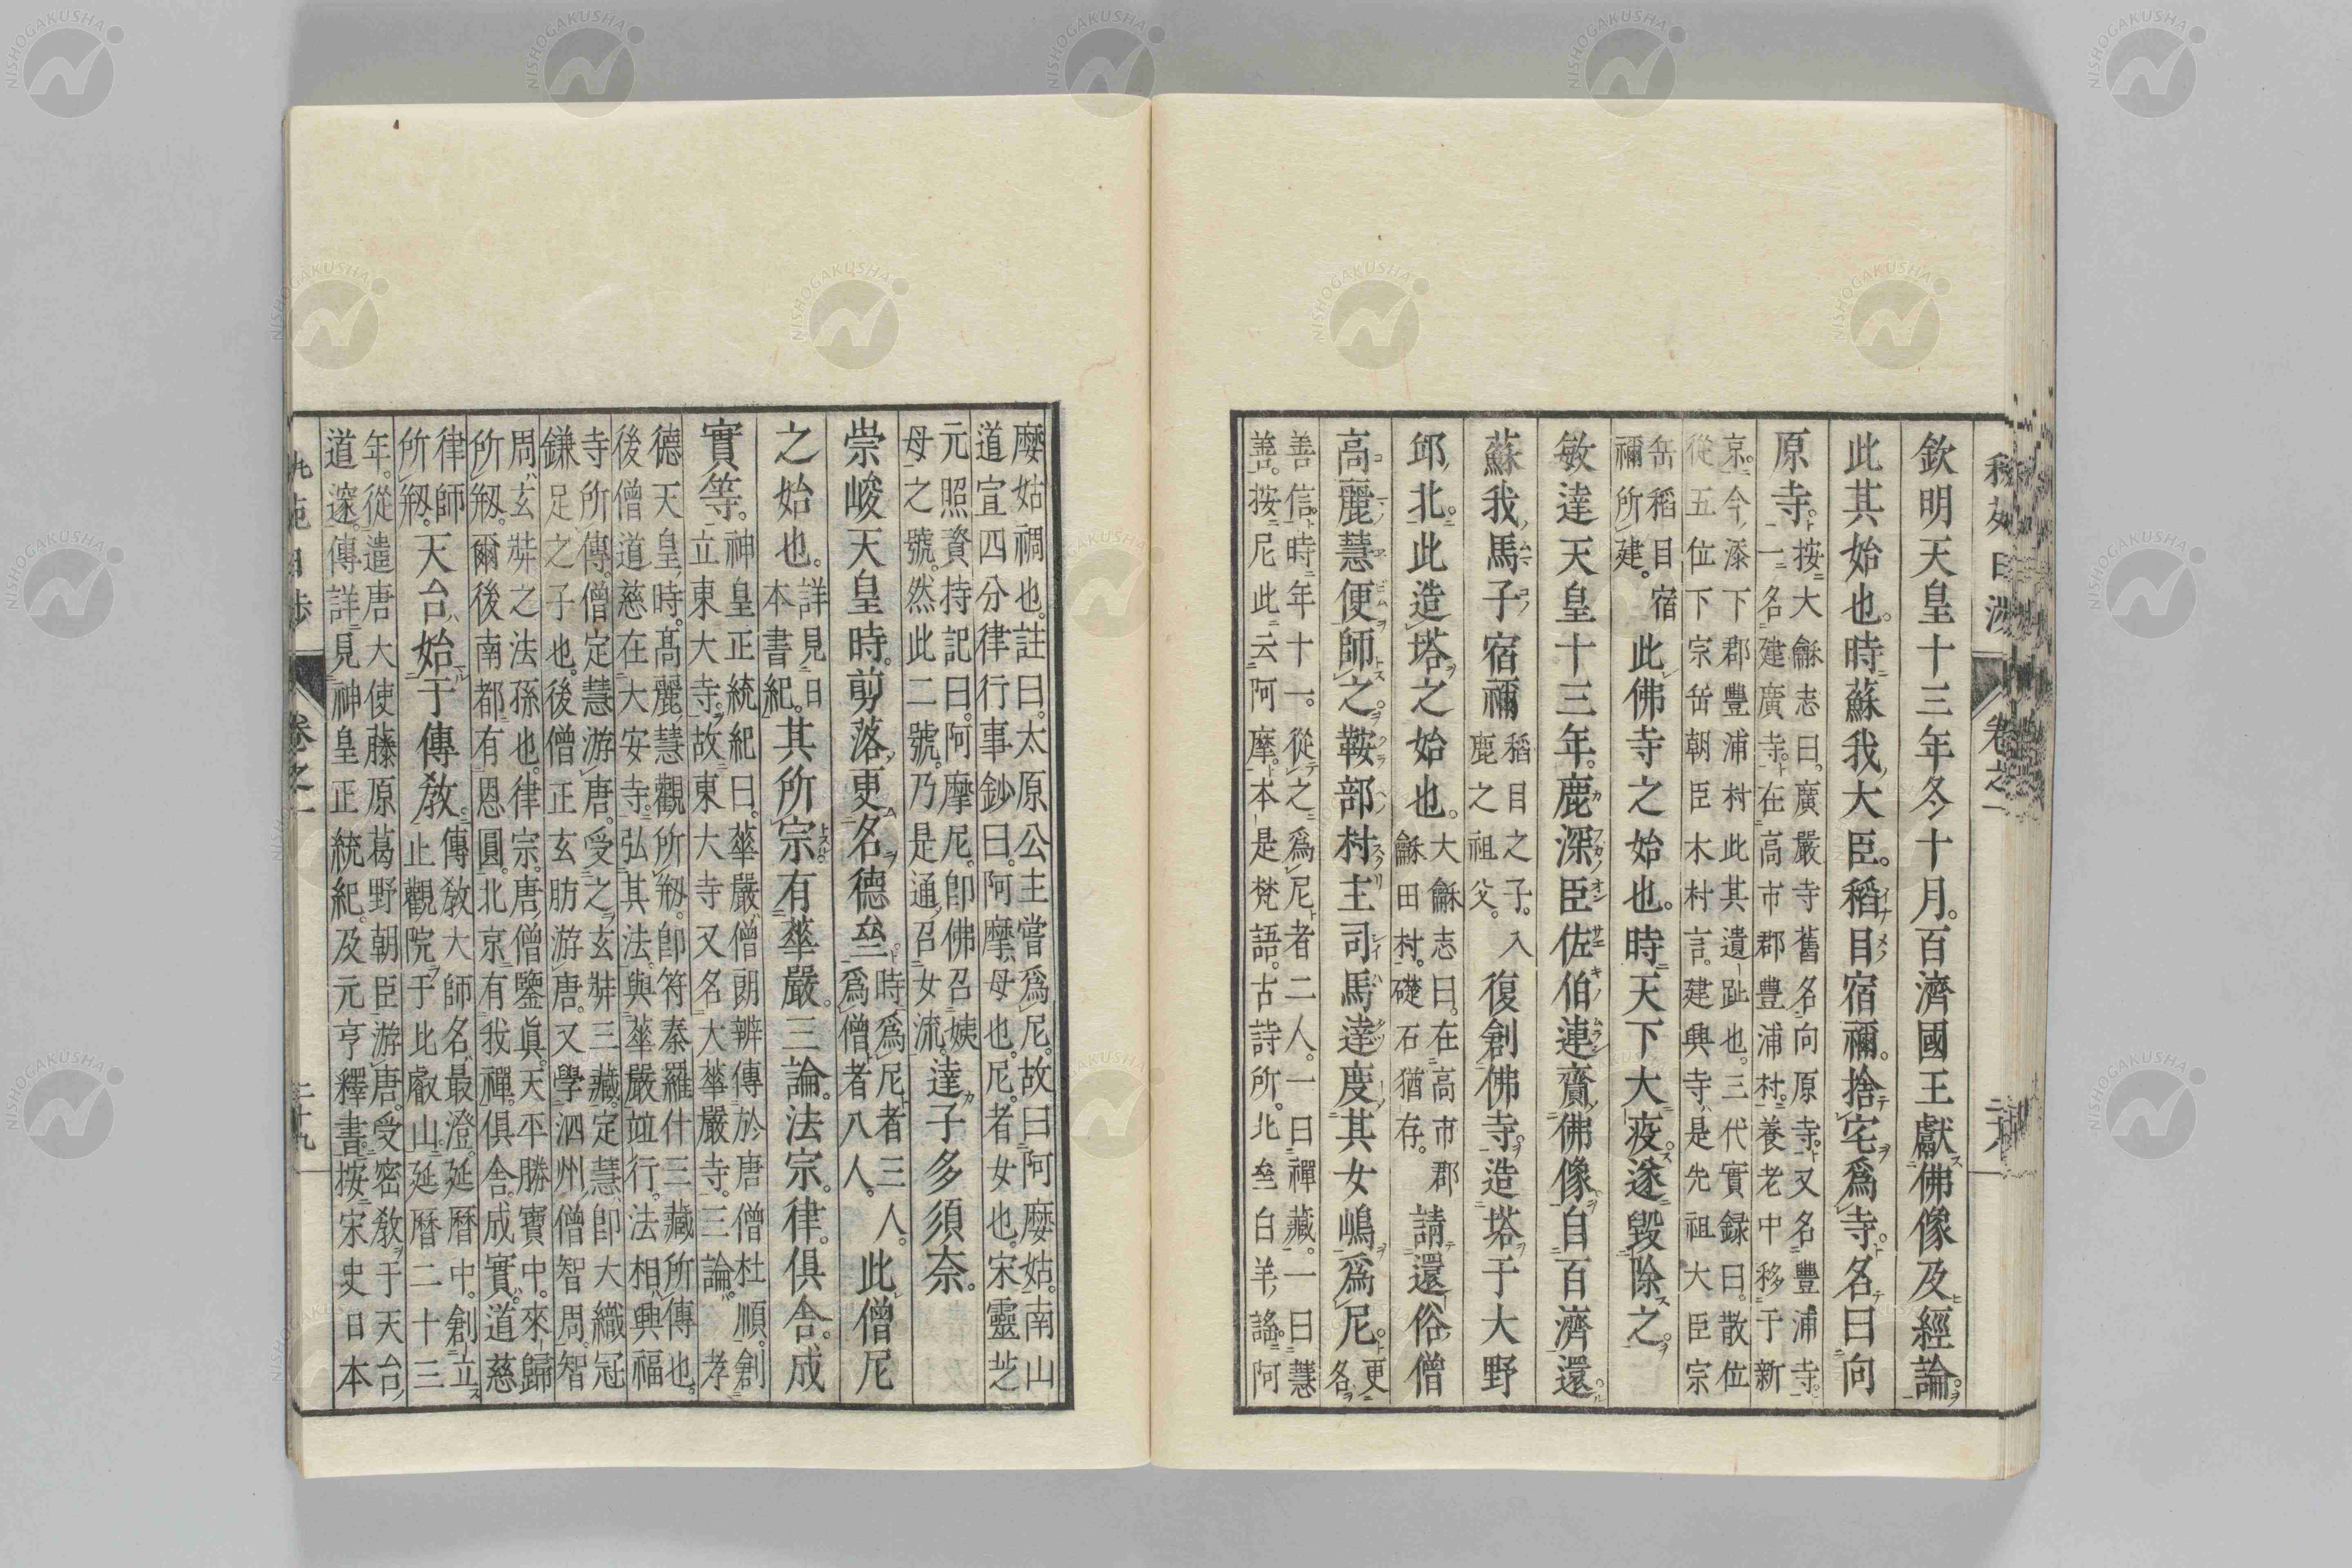 欽明天皇十三年冬十月。百濟國王獻佛像及經論。
此其始也。時蘇我大臣。稻目宿禰。捨宅爲寺。名曰向
原寺。按大龢志曰。廣嚴寺舊名向原寺。又名豐浦寺。
一名建廣寺。在高市郡豐浦村。養老中移于新
京。今添下郡豐浦村此其遺趾也。三代實録曰。散位
從五位下宗岳朝臣木村言。建興寺是先祖大臣宗
岳稻目宿
禰所建。此佛寺之始也。時天下大疫。遂毀除之。
敏達天皇十三年。鹿深臣佐伯連齎佛像自百濟還
蘇我馬子宿禰稻目之子。入
鹿之祖父。復創佛寺。造塔于大野
邱北。此造塔之始也。大龢志曰。在高市郡
龢田村。礎石猶存。請還俗僧
高麗慧便師之。鞍部村主司馬達度其女嶋爲尼。更
名
善信。時年十一。從之爲尼者二人。一曰禪藏。一曰慧
善。按尼此云阿摩。本是梵語。古詩所北壘白羊謠。阿
麼姑禂也。註曰。太原公主嘗爲尼。故曰阿麼姑。南山
道宣四分律行事鈔曰。阿摩母也。尼者女也。宋靈芝
元照資持記曰。阿摩尼。卽佛召姨
母之號。然此二號。乃是通召女流。達子多須奈。
崇峻天皇時。剪落更名德壘。時爲尼者三人。
爲僧者八人。此僧尼
之始也。詳見日
本書紀。其所宗有華嚴。三論。法宗。律。俱舍。成
實等。神皇正統紀曰。華嚴僧朗辨傳於唐僧杜順。創
立東大寺。故東大寺又名大華嚴寺。三論。孝
德天皇時。髙麗慧觀所剏。卽符秦羅什三藏所傳也。
後僧道慈在大安寺。弘其法。與華嚴竝行。法相興福
寺所傳。僧定慧游唐。受之玄奘三藏。定慧卽大織冠
鎌足之子也。後僧正玄昉游唐。又學泗州僧智周。智
周玄奘之法孫也。律宗。唐僧鑒眞。天平勝寶中。來歸
所剏。爾後南都有恩圓。北京有我禪。俱舍。成實。道慈
律師
所剏。天台始于傳教。傳教大師名最澄。延曆中。創立
止觀院于比叡山。延曆二十三
年。從遣唐大使藤原葛野朝臣游唐。受密教于天台
道邃。傳詳見神皇正統紀。及元亨釋書。按宋史日本
卷之一
二十九